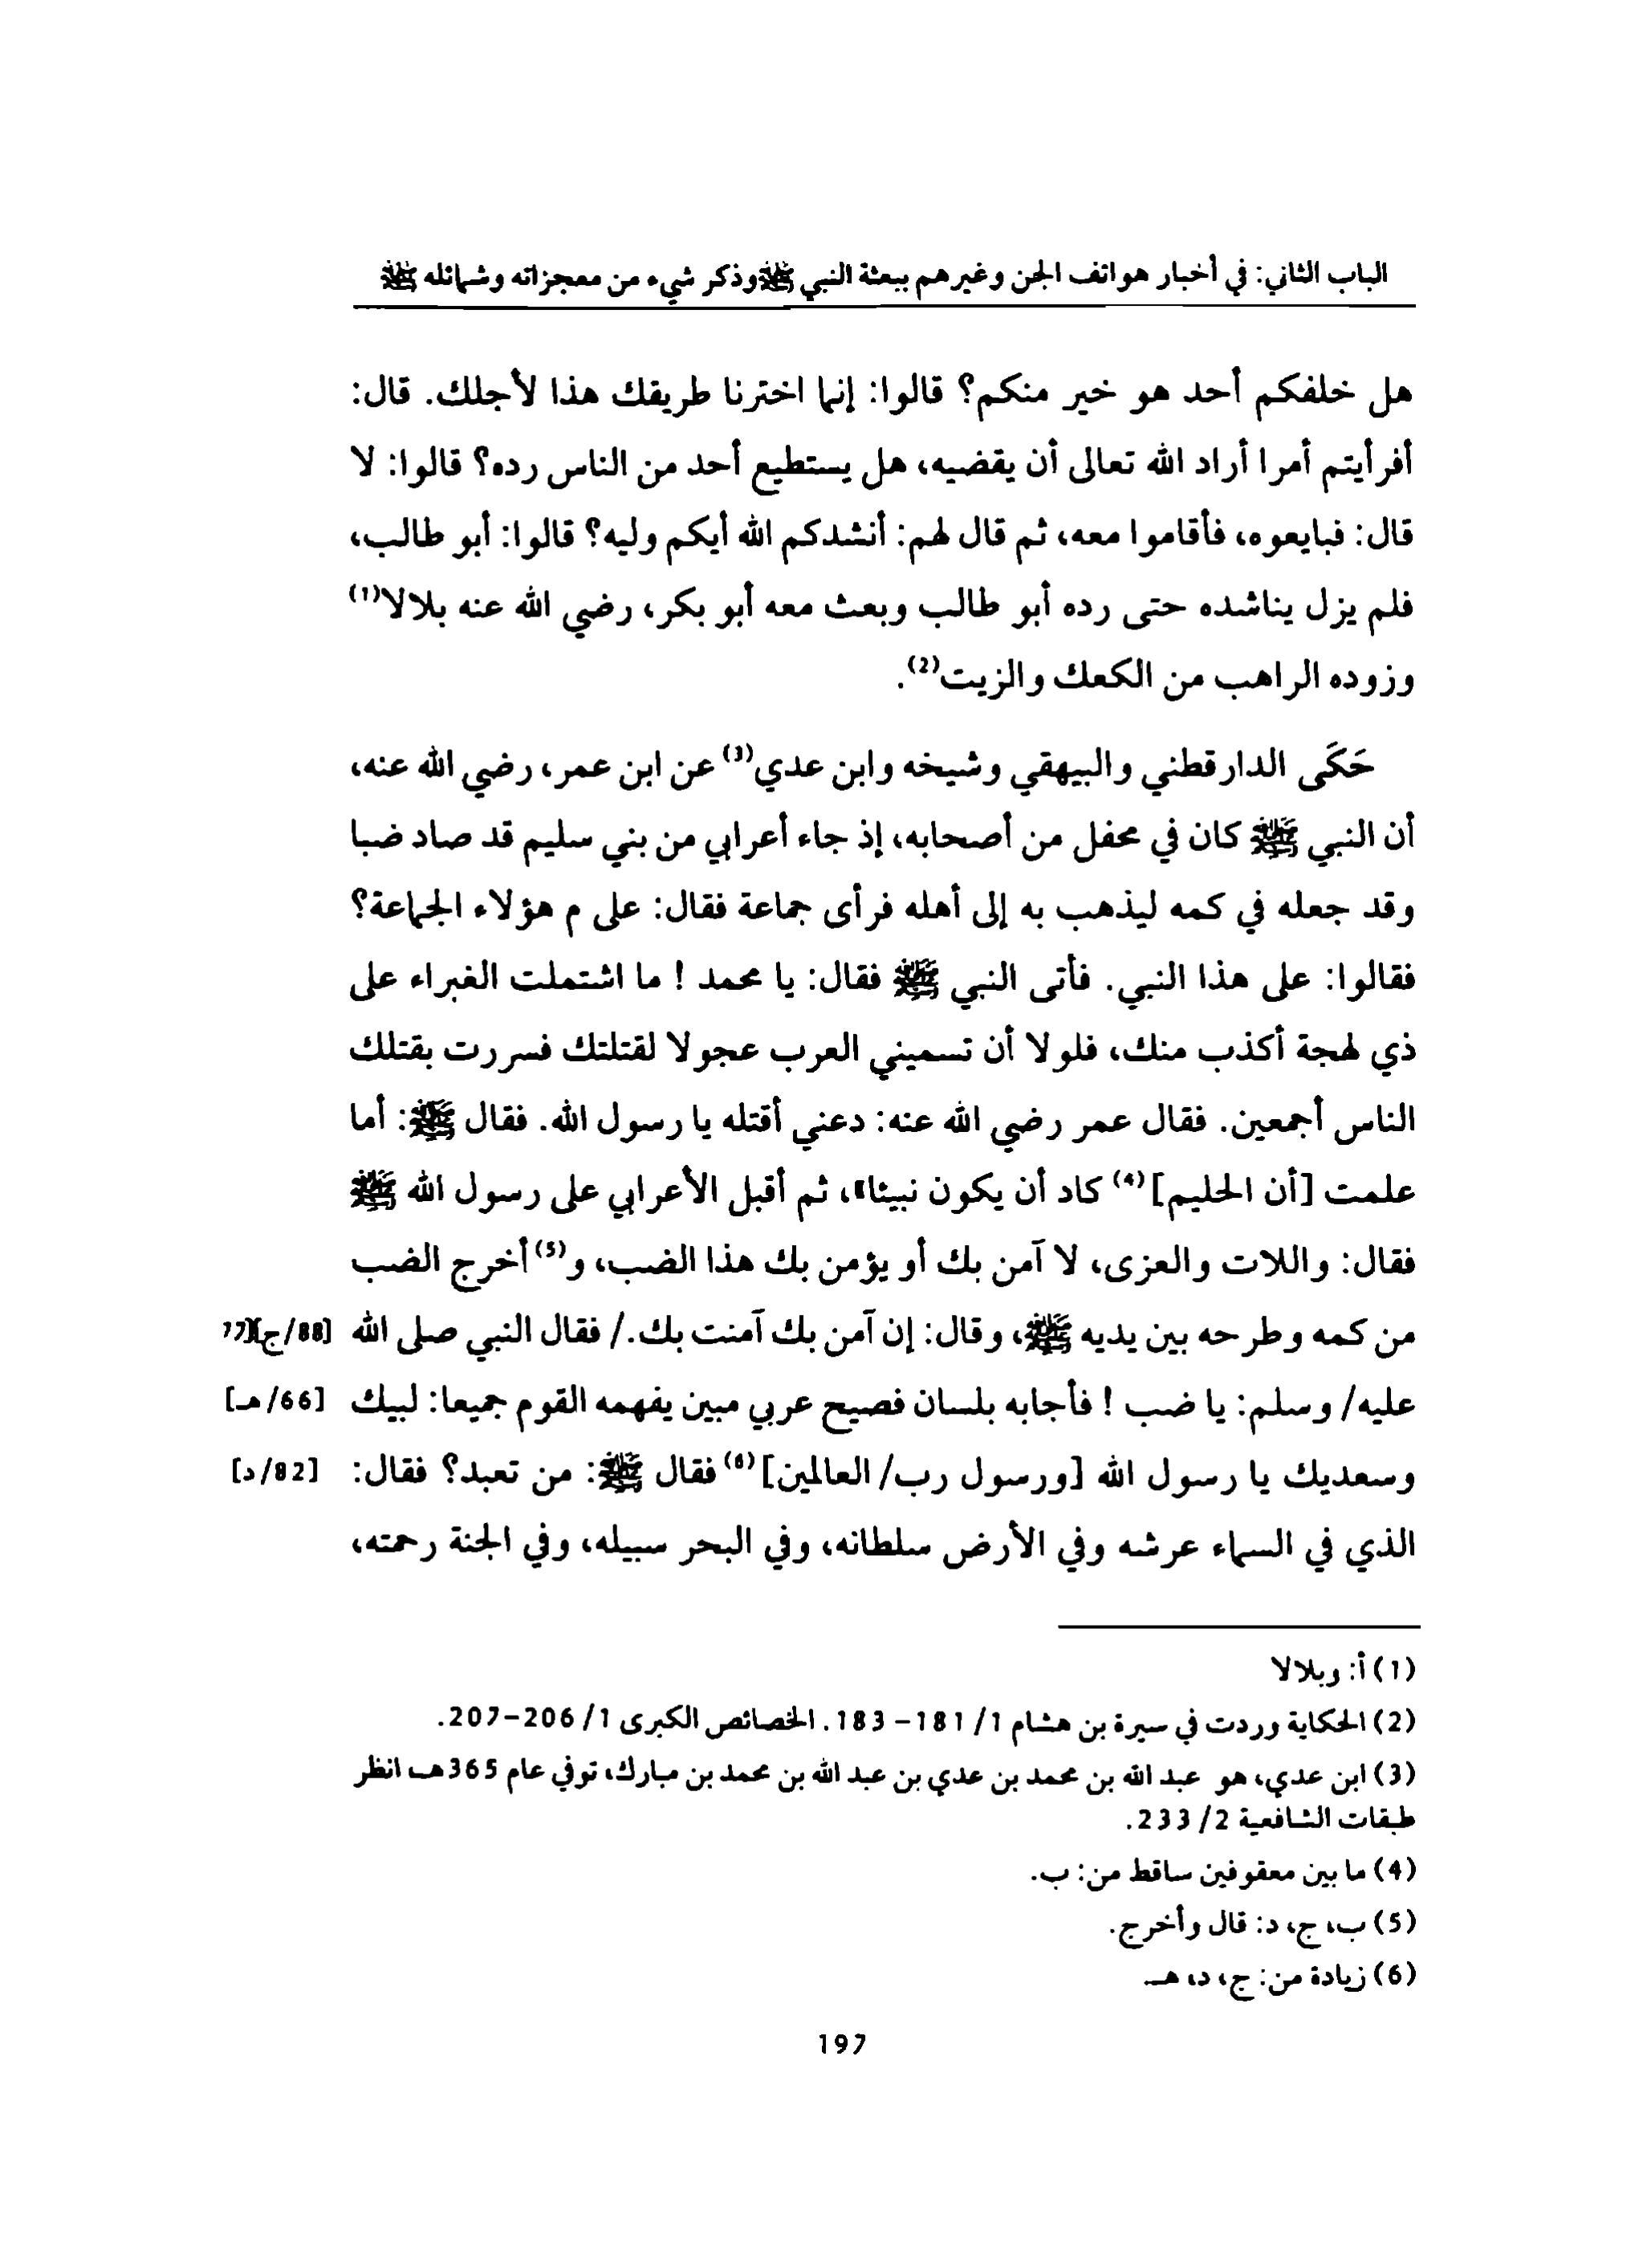 الباب الثاني: في أخبار هواتف الجن وغيرهم ببعثة النبي ﷺ وذكر شيء من معجزاته وشمائله ﷺ
هل خلفكم أحد هو خير منكم؟ قالوا: إنما اخترنا طريقك هذا لأجلك. قال:
أفرأيتم أمرا أراد الله تعالى أن يقضيه، هل يستطيع أحد من الناس رده؟ قالوا: لا
قال: فبايعوه، فأقاموا معه، ثم قال لهم: أنشدكم الله أيكم وليه؟ قالوا: أبو طالب،
فلم يزل يناشده حتى رده أبو طالب وبعث معه أبو بكر، رضي الله عنه بلالا(1)
وزوده الراهب من الكعك والزيت(2).
حَكَى الدارقطني والبيهقي وشيخه وابن عدي(3) عن ابن عمر، رضي الله عنه،
أن النبي ﷺ كان في محفل من أصحابه، إذ جاء أعرابي من بني سليم قد صاد ضبا
وقد جعله في كمه ليذهب به إلى أهله فرأى جماعة فقال: على م هؤلاء الجماعة؟
فقالوا: على هذا النبي. فأتى النبي ﷺ فقال: يا محمد ! ما اشتملت الغبراء على
ذي لهجة أكذب منك، فلولا أن تسميني العرب عجولا لقتلتك فسررت بقتلك
الناس أجمعين. فقال عمر رضي الله عنه: دعني أقتله يا رسول الله. فقال ﷺ: أما
علمت [أن الحليم](4) كاد أن يكون نبيئا»، ثم أقبل الأعرابي على رسول الله ﷺ
فقال: واللات والعزى، لا آمن بك أو يؤمن بك هذا الضب، و(5)أخرج الضب
من كمه وطرحه بين يديه ﷺ، وقال: إن آمن بك آمنت بك./ فقال النبي صلى الله [88/ج][77
عليه/ وسلم: يا ضب ! فأجابه بلسان فصيح عربي مبين يفهمه القوم جميعا: لبيك [66/هـ]
وسعديك يا رسول الله [ورسول رب/ العالمين](6) فقال ﷺ: من تعبد؟ فقال: [82/د]
الذي في السماء عرشه وفي الأرض سلطانه، وفي البحر سبيله، وفي الجنة رحمته،
(1) أ: وبلالا
(2) الحكاية وردت في سيرة بن هشام 1/ 181- 183. الخصائص الكبرى 1/ 206-207.
(3) ابن عدي، هو عبد الله بن محمد بن عدي بن عبد الله بن محمد بن مبارك، توفي عام 365هـ انظر
طبقات الشافعية 2/ 233.
(4) ما بين معقوفين ساقط من: ب.
(5) ب، ج، د: قال وأخرج.
(6) زيادة من: ج، د، هـ
197